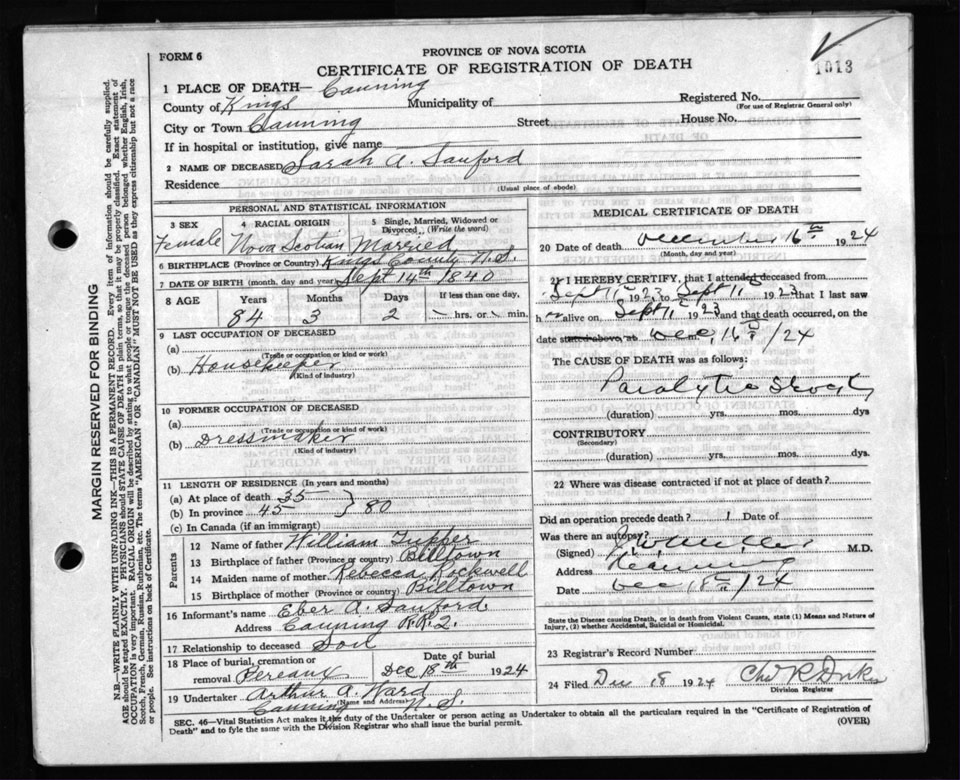 PROVINCE OF NOVA SCOTIA
FORM 6
CERTIFICATE OF REGISTRATION OF DEATH
1013
1 PLACE OF DEATH— Canning
County of Kings Municipality of Registered No.
(For use of Registrar General only)
City or Town Canning Street House No.
If in hospital or institution, give name
2 NAME OF DECEASED Sarah A. Sanford
Residence
(Usual place of abode)
PERSONAL AND STATISTICAL INFORMATION
3 SEX 4 RACIAL ORIGIN 5 Single, Married, Widowed or Divorced, (Write the word)
Female Nova Scotian Married
6 BIRTHPLACE (Province or Country) Kings County N.S.
7 DATE OF BIRTH (month, day and year) Sept 14th 1840
8 AGE Years Months Days If less than one day,
84 3 2 — hrs. or min.
9 LAST OCCUPATION OF DECEASED
(a)
(Trade or occupation or kind or work)
(b) Housekeeper
(Kind of industry)
10 FORMER OCCUPATION OF DECEASED
(a)
(Trade or occupation or kind of work)
(b) Dressmaker
(Kind of industry)
11 LENGTH OF RESIDENCE (In years and months)
(a) At place of death 35
(b) In province 45 } 80
(c) In Canada (if an immigrant)
Parents
12 Name of father William Tupper
13 Birthplace of father (Province or country) Billtown
14 Maiden name of mother Rebecca Rockwell
15 Birthplace of mother (Province or country) Billtown
16 Informant's name Eber A. Sanford.
Address Canning R.R.2.
17 Relationship to deceased Son
18 Place of burial, cremation or removal Pereaux Date of burial Dec 18th 1924
19 Undertaker Arthur A. Ward
(Name and Address)
Canning N.S.
MEDICAL CERTIFICATE OF DEATH
20 Date of death December 16th 1924
(Month, day and year)
21 I HEREBY CERTIFY, that I attended deceased from
Sept 11 1923, to Sept 11 1923 that I last saw
h alive on Sept 11 1923 and that death occurred, on the
date stated above, at m. Dec, 16th/24
The CAUSE OF DEATH was as follows:
Paralytic Shock
(duration) yrs. mos. dys
CONTRIBUTORY
(Secondary)
(duration) yrs. mos. dys.
22 Where was disease contracted if not at place of death?
Did an operation precede death? Date of
Was there an autopsy?
(Signed) M.D.
Address Canning
Date Dec 18th/24
State the Disease causing Death, or in death from Violent Causes, state (1) Means and Nature of Injury, (2) whether Accidental, Suicidal or Homicidal.
23 Registrar's Record Number
24 Filed Dec 18 1924
Division Registrar
SEC. 46—Vital Statistics Act makes it the duty of the Undertaker or person acting as Undertaker to obtain all the particulars required in the "Certificate of Registration of
Death" and to fyle the same with the Division Registrar who shall issue the burial permit. (OVER)
MARGIN RESERVED FOR BINDING
N.B.—WRITE PLAINLY WITH UNFADING INK—THIS IS A PERMANENT RECORD. Every item of information should be carefully supplied.
AGE should be stated EXACTLY. PHYSICIANS should STATE CAUSE OF DEATH in plain terms, so that it may be properly classified. Exact statement of
OCCUPATION is very important. RACIAL ORIGIN will be described by stating to what people or tongue the deceased person belonged, whether English, Irish,
Scotch, French, German, Russian, Ruthenian, etc. The terms "AMERICAN" or "CANADIAN" MUST NOT BE USED as they express citizenship but not a race
or people. See instructions on back of Certificate.